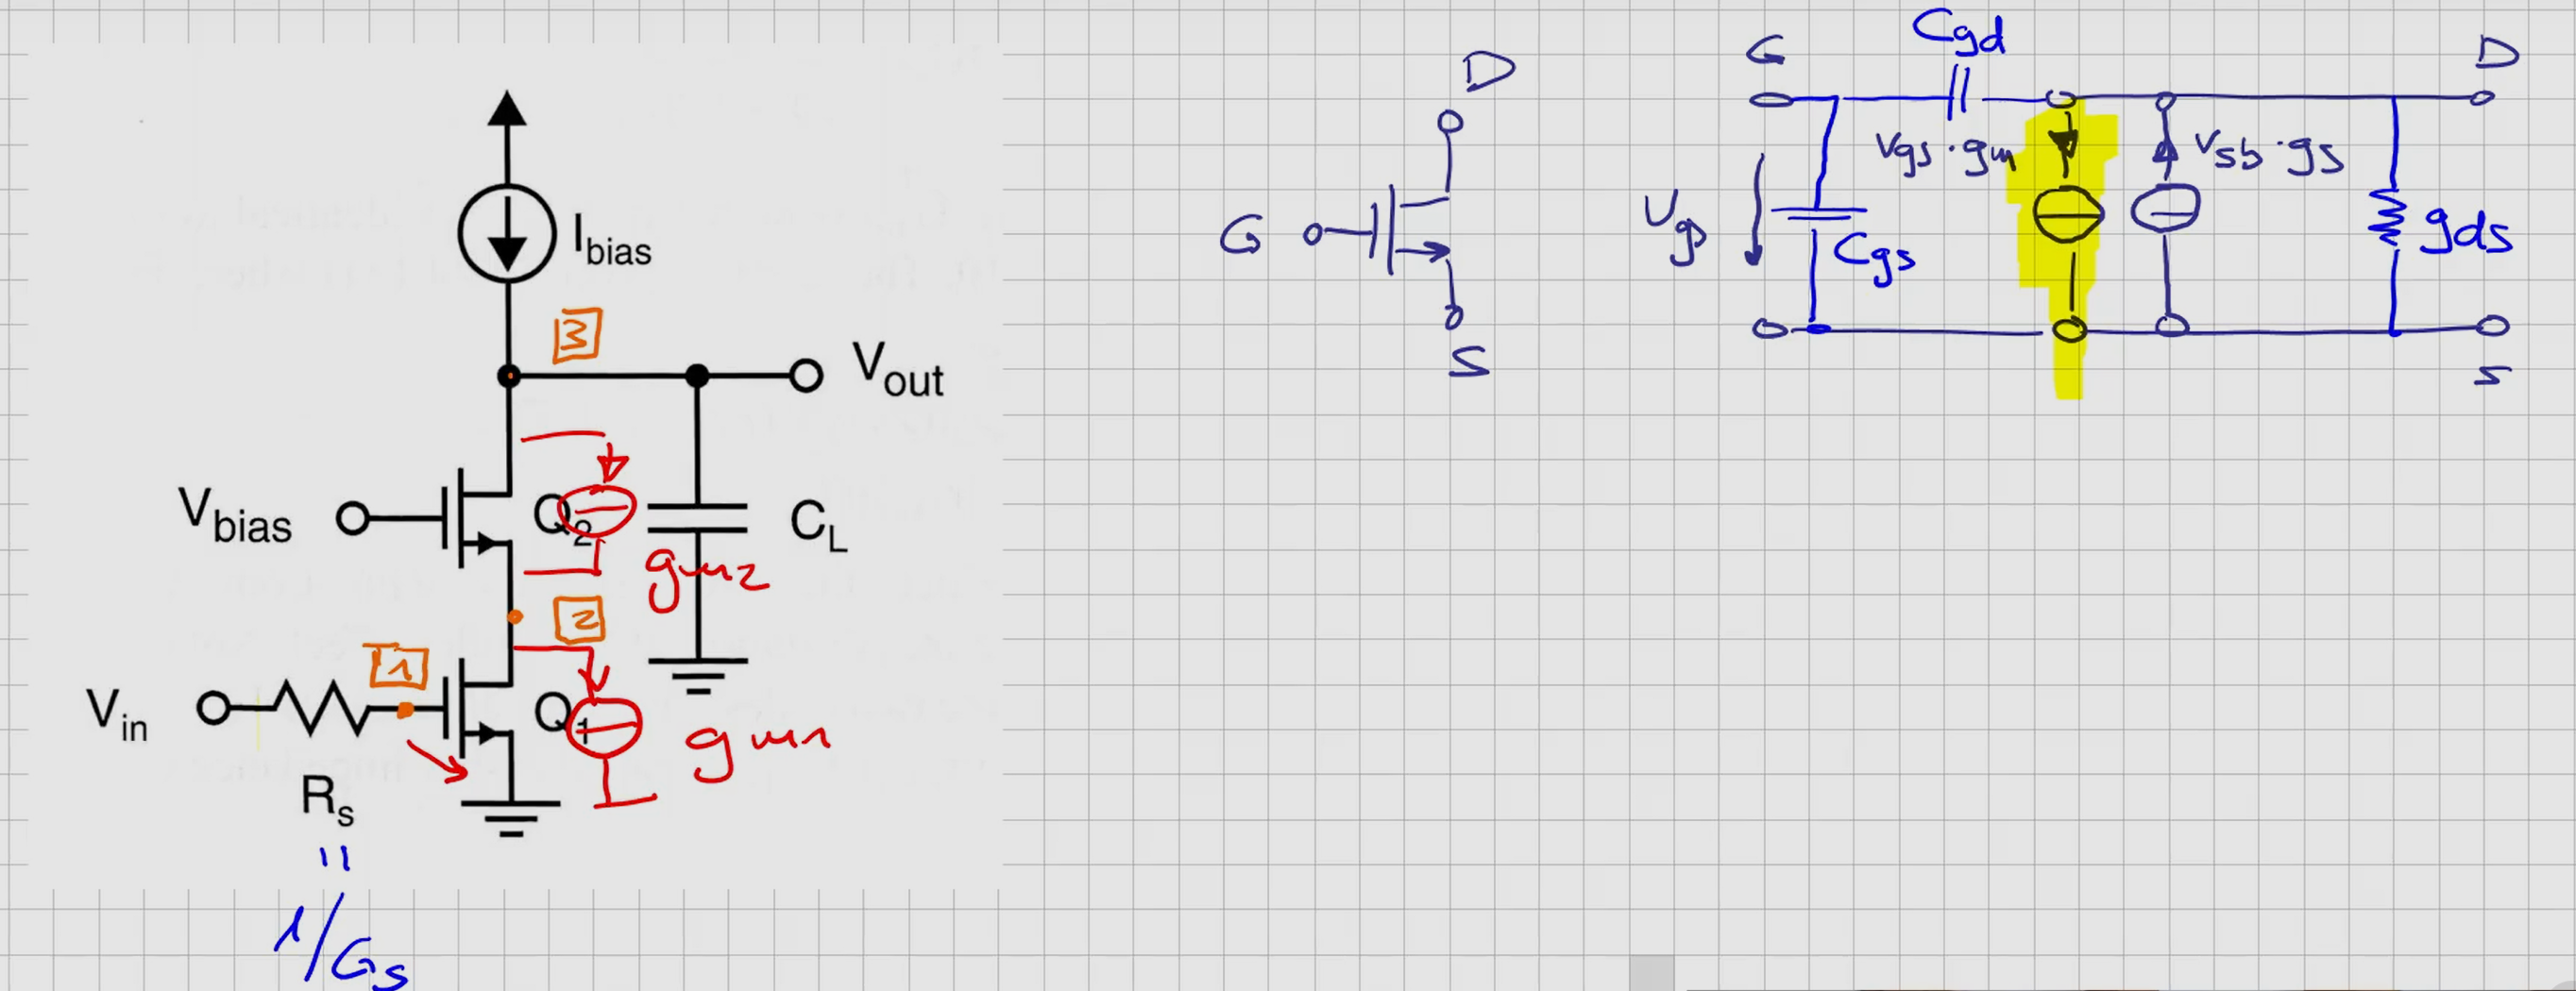 I_bias
3
V_out
V_bias
Q_2
C_L
gm2
2
1
V_in
Q_1
gm1
R_s
=
1/G_s
D
G
S
G
Cgd
D
Vgs · gm
Vsb · gs
Cgs
gds
S